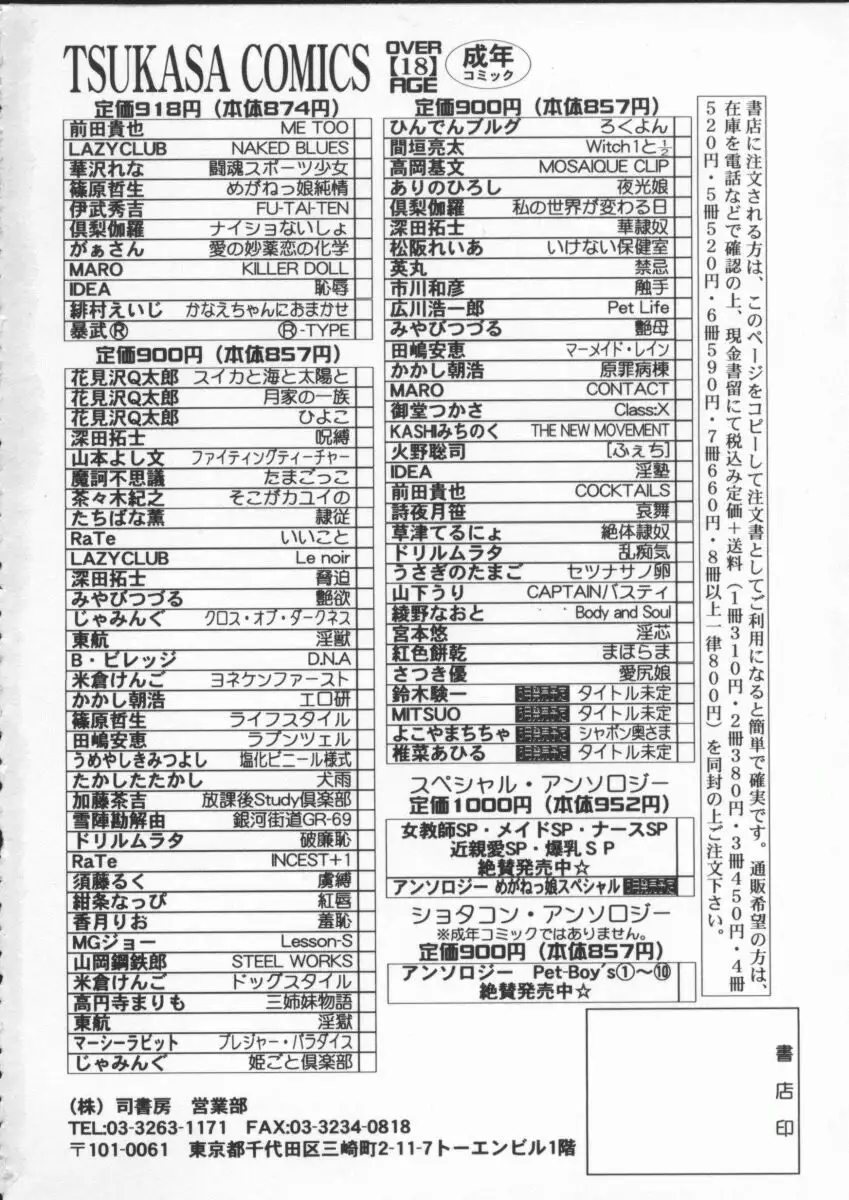 TSUKASA COMICS
OVER
【18】
AGE
成年
コミック
定価918円（本体874円）
前田貴也 ME TOO
LAZYCLUB NAKED BLUES
華沢れな 闘魂スポーツ少女
篠原哲生 めがねっ娘純情
伊武秀吉 FU-TAI-TEN
倶梨伽羅 ナイショないしょ
がぁさん 愛の妙薬恋の化学
MARO KILLER DOLL
IDEA 恥辱
緋村えいじ かなえちゃんにおまかせ
暴武Ⓡ Ⓡ-TYPE
定価900円（本体857円）
花見沢Q太郎 スイカと海と太陽と
花見沢Q太郎 月家の一族
花見沢Q太郎 ひよこ
深田拓士 呪縛
山本よし文 ファイティングティーチャー
魔訶不思議 たまごっこ
茶々木紀之 そこがカユイの
たちばな薫 隷従
RaTe いいこと
LAZYCLUB Le noir
深田拓士 脅迫
みやびつづる 艶欲
じゃみんぐ クロス・オブ・ダークネス
東航 淫獣
B・ビレッジ D.N.A
米倉けんご ヨネケンファースト
かかし朝浩 エロ研
篠原哲生 ライフスタイル
田嶋安恵 ラプンツェル
うめやしきみつよし 塩化ビニール様式
たかしたたかし 犬雨
加藤茶吉 放課後Study倶楽部
雪陣勘解由 銀河街道GR-69
ドリルムラタ 破廉恥
RaTe INCEST+1
須藤るく 虜縛
紺条なっぴ 紅唇
香月りお 羞恥
MGジョー Lesson-S
山岡鋼鉄郎 STEEL WORKS
米倉けんご ドッグスタイル
高円寺まりも 三姉妹物語
東航 淫獄
マーシーラビット プレジャー・パラダイス
じゃみんぐ 姫ごと倶楽部
定価900円（本体857円）
ひんでんブルグ ろくよん
間垣亮太 Witch1と½
高岡基文 MOSAIQUE CLIP
ありのひろし 夜光娘
倶梨伽羅 私の世界が変わる日
深田拓士 華隷奴
松阪れいあ いけない保健室
英丸 禁忌
市川和彦 触手
広川浩一郎 Pet Life
みやびつづる 艶母
田嶋安恵 マーメイド・レイン
かかし朝浩 原罪病棟
MARO CONTACT
御堂つかさ Class:X
KASHIみちのく THE NEW MOVEMENT
火野聡司 [ふぇち]
IDEA 淫塾
前田貴也 COCKTAILS
詩夜月笹 哀舞
草津てるにょ 絶体隷奴
ドリルムラタ 乱痴気
うさぎのたまご セツナサノ卵
山下うり CAPTAINバスティ
綾野なおと Body and Soul
宮本悠 淫芯
紅色餅乾 まほらま
さつき優 愛尻娘
鈴木験一 タイトル未定
MITSUO タイトル未定
よこやまちちゃ シャボン奥さま
椎菜あひる タイトル未定
スペシャル・アンソロジー
定価1000円（本体952円）
女教師SP・メイドSP・ナースSP
近親愛SP・爆乳SP
絶賛発売中☆
アンソロジー めがねっ娘スペシャル
ショタコン・アンソロジー
※成年コミックではありません。
定価900円（本体857円）
アンソロジー Pet-Boy's①〜⑩
絶賛発売中☆
書店に注文される方は、このページをコピーして注文書としてご利用になると簡単で確実です。通販希望の方は、
在庫を電話などで確認の上、現金書留にて税込み定価＋送料（1冊310円・2冊380円・3冊450円・4冊
520円・5冊520円・6冊590円・7冊660円・8冊以上一律800円）を同封の上ご注文下さい。
書店印
（株）司書房 営業部
TEL:03-3263-1171 FAX:03-3234-0818
〒101-0061 東京都千代田区三崎町2-11-7トーエンビル1階